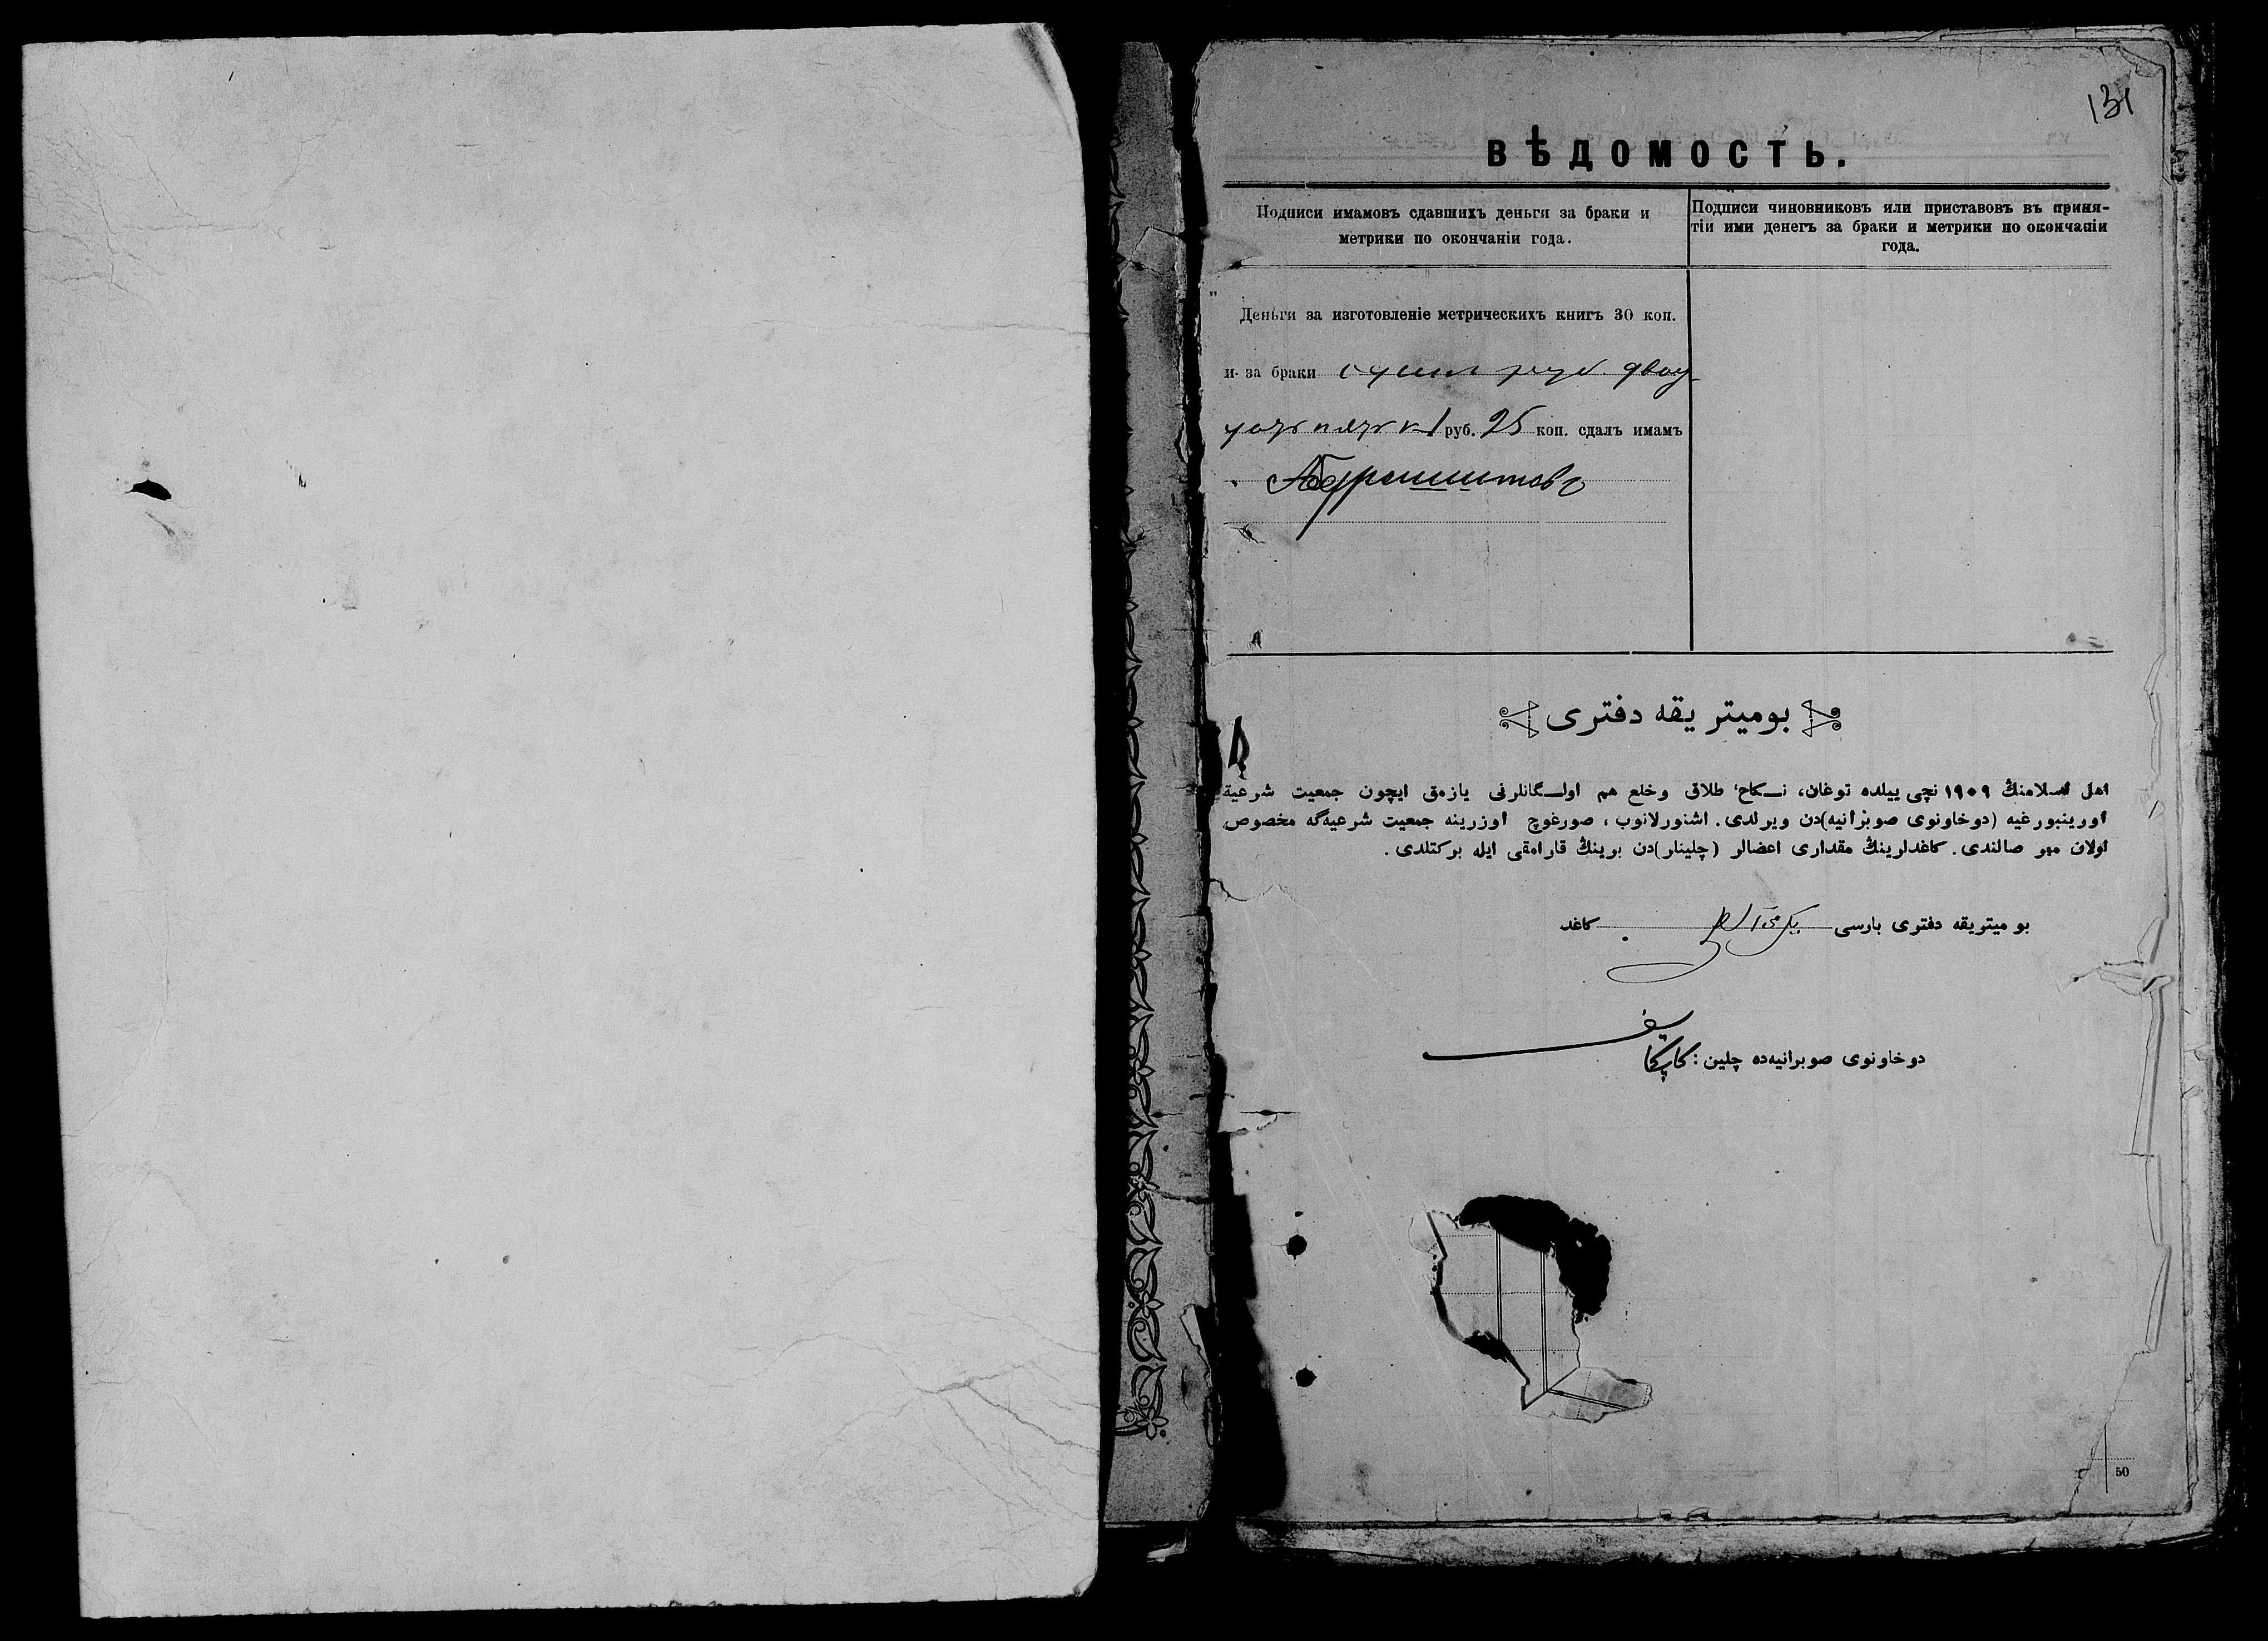 131
ВѢДОМОСТЬ.
Подписи имамовъ сдавшихъ деньги за браки и
метрики по окончаніи года.
Подписи чиновниковъ или приставовъ въ приня-
тіи ими денегъ за браки и метрики по окончаніи
года.
Деньги за изготовленіе метрическихъ книгъ 30 коп.
и за браки руб. двад
цать пять 1 руб. 25 коп. сдалъ имамъ
بو ميتريقه دفترى
اهل اسلامنڭ ١٩٠٩ نچى ييلده توغان، نكاح، طلاق وخلع هم اولگانلرنى يازمق ايچون جمعيت شرعية
اورينبورغيه (دوخاونوى صوبرانيه)دن ويرلدى. اشنورلانوب، صورغوچ اوزرينه جمعيت شرعيه‌گه مخصوص
اولان مهر صالندى. كاغدلرينڭ مقدارى اعضالر (چلينلر)دن برينڭ قارامقى ايله بركتلدى.
بو ميتريقه دفترى بارسى كاغد
دوخاونوى صوبرانيه‌ده چلين:
50